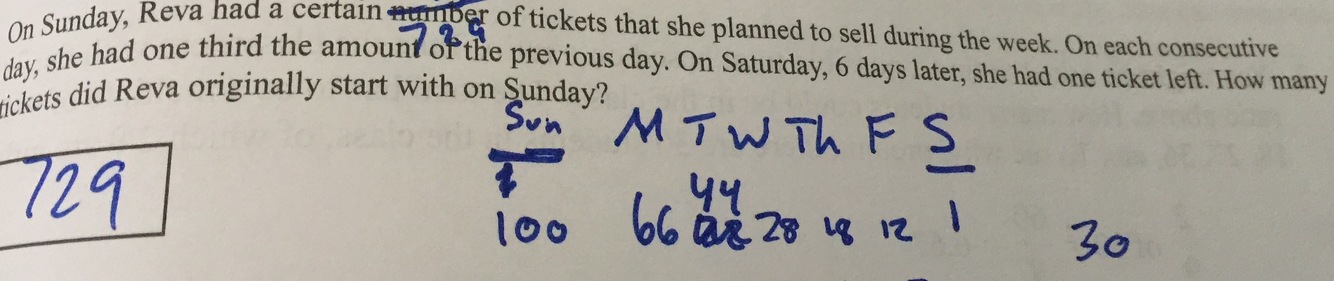 On Sunday, Reva had a certain number of tickets that she planned to sell during the week. On each consecutive
729
day, she had one third the amount of the previous day. On Saturday, 6 days later, she had one ticket left. How many
tickets did Reva originally start with on Sunday?
Sun M T W Th F S
729
44
100 66 28 18 12 1 30